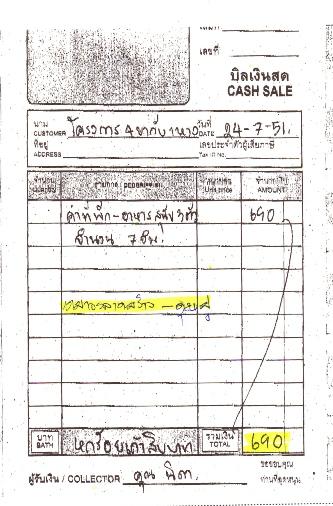 เลขที่
บิลเงินสด
CASH SALE
นาม
CUSTOMER
โครงการ 4 ขากับ 1 หาง
วันที่
DATE
24-7-51.
ที่อยู่
ADDRESS
เลขประจำตัวผู้เสียภาษี
จำนวนเงิน
AMOUNT
ค่าที่พัก-อาหารสุนัข 3 ตัว 690
จำนวน 7 วัน.
บาท
BATH
หกร้อยเก้าสิบบาท
รวมเงิน
TOTAL
690
ผู้รับเงิน / COLLECTOR คุณ นิดา
ขอขอบคุณ
ท่านที่อุดหนุน